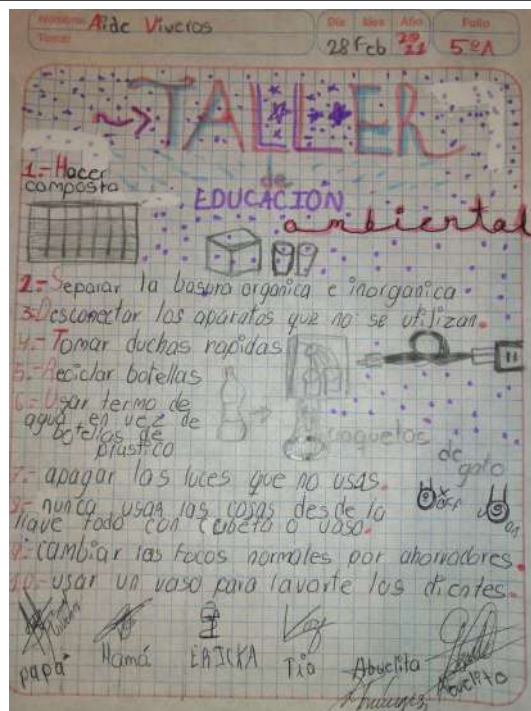 Nombre: Aide Viveros
Día Mes Año Folio
Tema: 28 Feb 2022 5ºA
TALLER
de
EDUCACIÓN
ambiental
1.- Hacer
composta
2.- Separar la basura organica e inorganica.
3.- Desconectar los aparatos que no se utilizan.
4.- Tomar duchas rapidas
5.- Reciclar botellas
6.- Usar termo de
agua en vez de
botellas de
plastico
croquetas
de
gato
7.- apagar las luces que no usas.
OFF
on
8.- nunca usar las cosas desde la
llave todo con cubeta o vaso.
9.- cambiar los focos normales por ahorradores.
10.- usar un vaso para lavarte los dientes.
papá Mamá ERICKA Tio Abuelita Abuelito